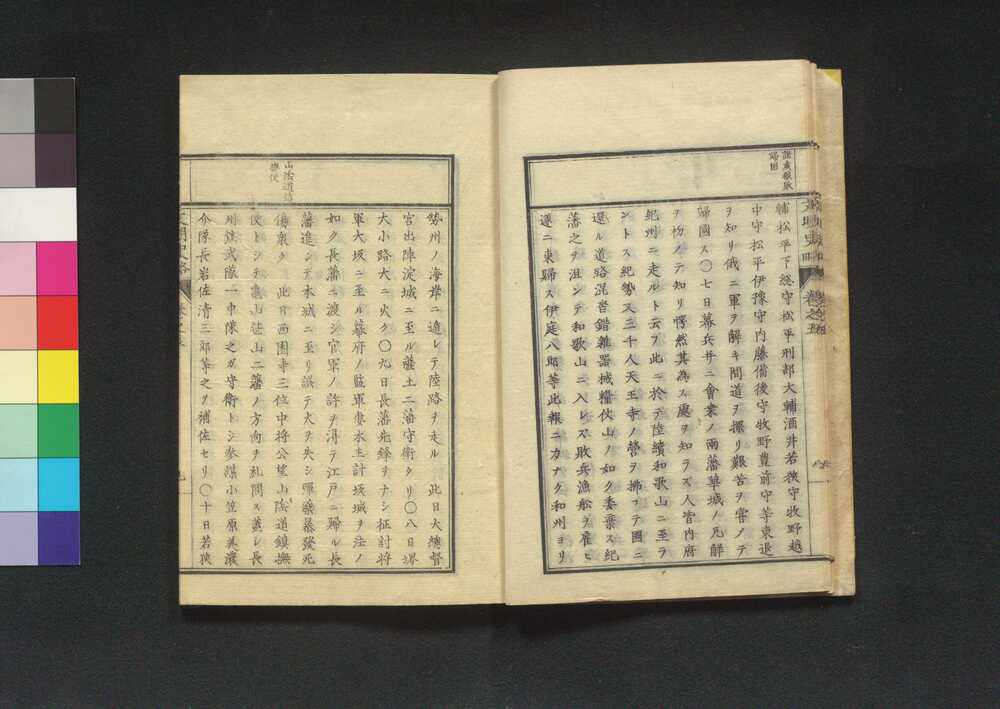 補松平下総守松平刑部大輔酒井若狭守牧野越
中守松平伊豫守内藤備後守牧野豊前守等東退
ヲ知リ俄ニ軍ヲ解キ間道ヲ擇リ艱苦ヲ嘗ノテ
歸國ス〇七日幕兵并ニ會桑ノ兩藩華城ノ瓦解
ヲ初ノテ知リ愕然其為ス處ヲ知ラス人皆内府
紀州ニ走ルト云フ此ニ於テ陸續和歌山ニ至ラ
ントス紀勢又三千人天王寺ノ營ヲ拂フテ國ニ
還ル道路混沓錯雜器械糧仗山ノ如ク委棄ス紀
藩之ヲ沮ンテ和歌山ニ入レス敗兵漁船ヲ雇ヒ
遂ニ東歸ス伊庭八郎等此報ニカナク和州ヨリ
勢州ノ海岸ニ遁レテ陸路ヲ走ル 此日大總督
宮出陣淀城ニ至ル薩土二藩守衛タリ〇八日堺
大小路大ニ火ク〇九日長藩先鋒ヲナシ征討将
軍大坂ニ至ル幕府ノ監軍妻木主計坂城ヲ法ノ
如ク長藩ニ渡シ官軍ノ許ヲ得テ江戸ニ歸ル長
藩進ンテ本城ニ至リ誤テ火ヲ失シ暉職暴發死
傷衆ク 此日西園寺三位中将公望山陰道鎮撫
使トシテ亀山笹山二藩ノ方向ヲ糺問ス蓋シ長
州鋭武隊一中隊之ガ守衛トシ参謀小笠原美濃
介隊長岩佐清三郎等之ヲ補佐セリ〇十日若狭